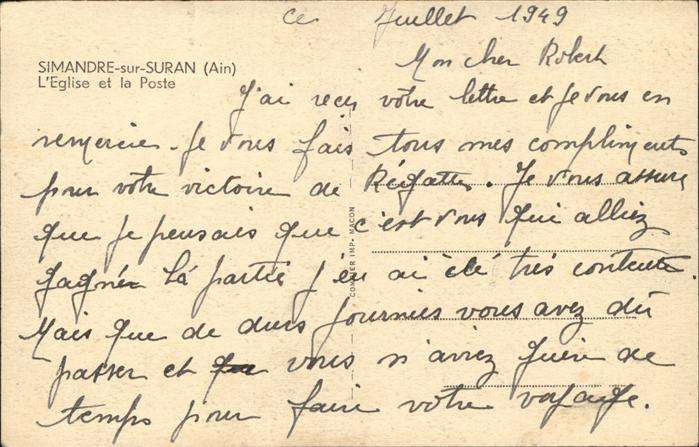 ce Juillet 1949
SIMANDRE-sur-SURAN (Ain)
L'Eglise et la Poste
Mon cher Robert
J'ai reçu votre lettre et je vous en
remercie. Je vous fais tous mes compliments
pour votre victoire de Régates. Je vous assure
que je pensais que c'est vous qui alliez
gagner la partie j'en ai été très contente.
Mais que de durs journées vous avez dû
passer et que vous n'aviez guère de
temps pour faire votre voyage.
COMBIER IMP. MACON